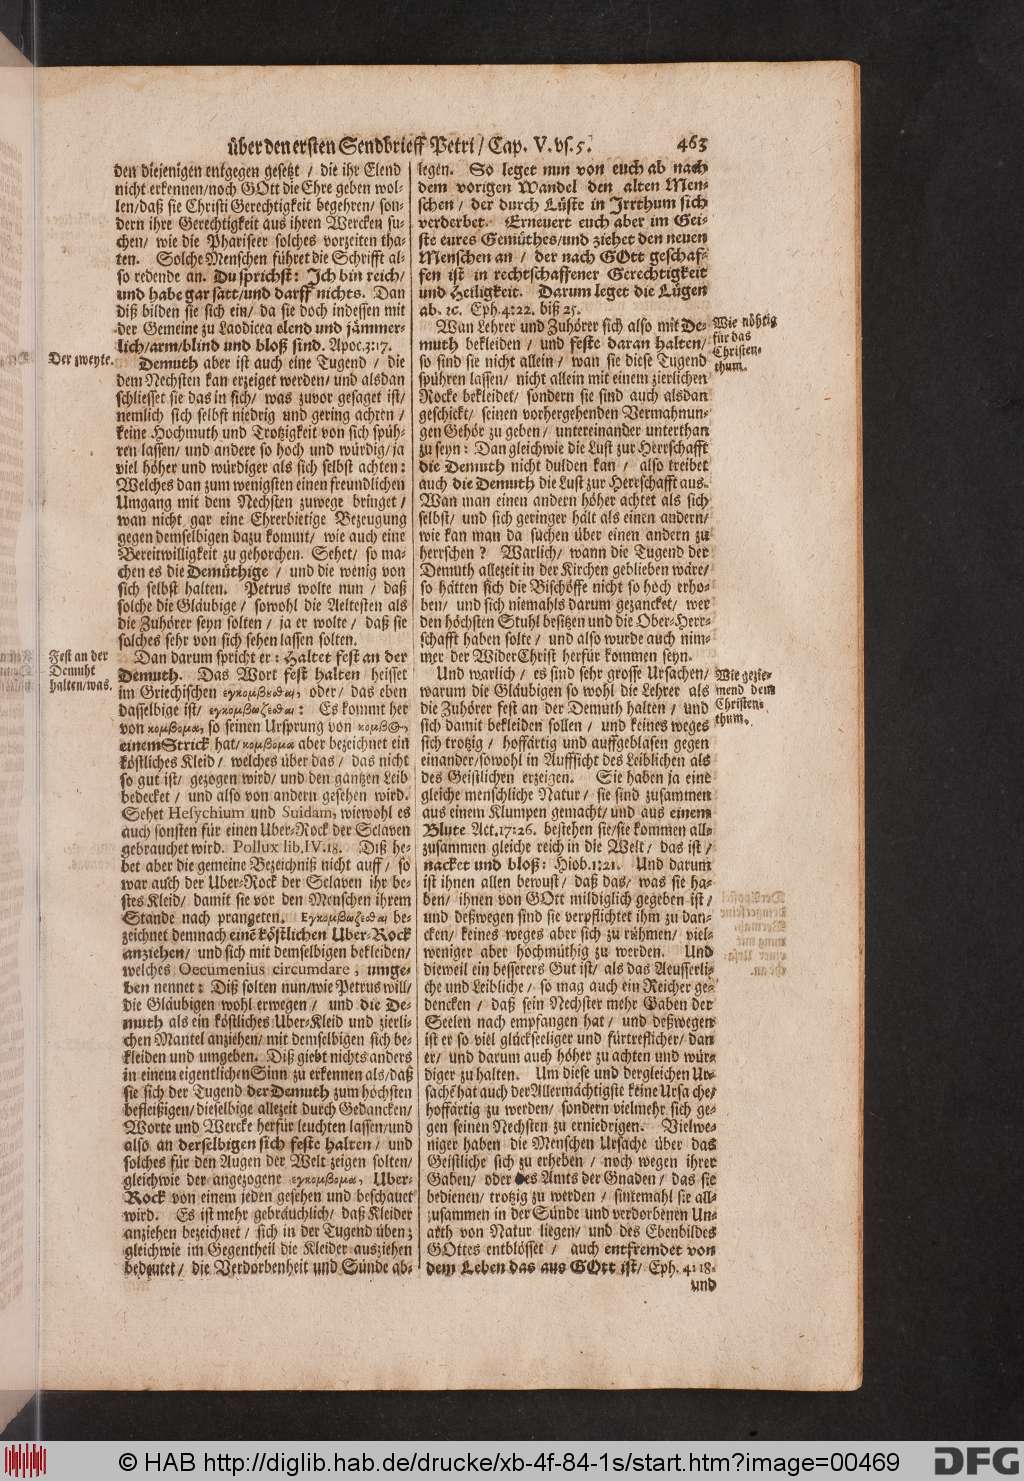 über den ersten Sendbrieff Petri / Cap. V. vs. 5. 463
den diejenigen entgegen gesetzt / die ihr Elend
nicht erkennen/noch GOtt die Ehre geben wol-
len/daß sie Christi Gerechtigkeit begehren/ son-
dern ihre Gerechtigkeit aus ihren Wercken su-
chen/ wie die Phariseer solches vorzeiten tha-
ten. Solche Menschen führet die Schrifft al-
so redende an. Du sprichst: Ich bin reich/
und habe gar satt/und darff nichts. Dan
diß bilden sie sich ein/ da sie doch indessen mit
der Gemeine zu Laodicea elend und jämmer-
lich/arm/blind und bloß sind. Apoc.3:17.
Der zweyte.
Demuth aber ist auch eine Tugend / die
dem Nechsten kan erzeiget werden/ und alsdan
schliesset sie das in sich/ was zuvor gesaget ist/
nemlich sich selbst niedrig und gering achten /
keine Hochmuth und Trotzigkeit von sich spüh-
ren lassen/ und andere so hoch und würdig/ ja
viel höher und würdiger als sich selbst achten:
Welches dan zum wenigsten einen freundlichen
Umgang mit dem Nechsten zuwege bringet /
wan nicht gar eine Ehrerbietige Bezeugung
gegen demselbigen dazu kommt/ wie auch eine
Bereitwilligkeit zu gehorchen. Sehet/ so ma-
chen es die Demüthige / und die wenig von
sich selbst halten. Petrus wolte nun / daß
solche die Gläubige / sowohl die Aeltesten als
die Zuhörer seyn solten / ja er wolte / daß sie
solches sehr von sich sehen lassen solten.
Fest an der
Demuht
halten/was.
Dan darum spricht er: Haltet fest an der
Demuth. Das Wort fest halten heisset
im Griechischen εγκομβουσθαι, oder / das eben
dasselbige ist/ εγκομβωζεσθαι: Es kommt her
von κομβομα, so seinen Ursprung von κομβος,
einem Strick hat/κομβομα aber bezeichnet ein
köstliches Kleid / welches über das / das nicht
so gut ist/ gezogen wird/ und den gantzen Leib
bedecket / und also von andern gesehen wird.
Sehet Hesychium und Suidam, wiewohl es
auch sonsten für einen Uber-Rock der Sclaven
gebrauchet wird. Pollux lib. IV. 18. Diß he-
bet aber die gemeine Bezeichniß nicht auff / so
war auch der Uber-Rock der Sclaven ihr be-
stes Kleid/ damit sie vor den Menschen ihrem
Stande nach prangeten. Εγκομβωζεσθαι be-
zeichnet demnach einē köstlichen Uber-Rock
anziehen/ und sich mit demselbigen bekleiden/
welches Oecumenius circumdare, umge-
ben nennet: Diß solten nun/wie Petrus will/
die Gläubigen wohl erwegen / und die De-
muth als ein köstliches Uber-Kleid und zierli-
chen Mantel anziehen/ mit demselbigen sich be-
kleiden und umgeben. Diß giebt nichts anders
in einem eigentlichen Sinn zu erkennen als/daß
sie sich der Tugend der Demuth zum höchsten
befleißigen/dieselbige allezeit durch Gedancken/
Worte und Wercke herfür leuchten lassen/und
also an derselbigen sich feste halten / und
solches für den Augen der Welt zeigen solten/
gleichwie der angezogene εγκομβομα, Uber-
Rock von einem jeden gesehen und beschauet
wird. Es ist mehr gebräuchlich/ daß Kleider
anziehen bezeichnet / sich in der Tugend üben;
gleichwie im Gegentheil die Kleider ausziehen
bedeutet / die Verdorbenheit und Sünde ab-
legen. So leget nun von euch ab nach
dem vorigen Wandel den alten Men-
schen / der durch Lüste in Irrthum sich
verderbet. Erneuert euch aber im Gei-
ste eures Gemüthes/und ziehet den neuen
Menschen an / der nach GOtt geschaf-
fen ist in rechtschaffener Gerechtigkeit
und Heiligkeit. Darum leget die Lügen
ab. ꝛc. Eph. 4:22. biß 25.
Wie nöhtig
für das
Christen-
thum.
Wan Lehrer und Zuhörer sich also mit De-
muth bekleiden / und feste daran halten/
so sind sie nicht allein / wan sie diese Tugend
spühren lassen/ nicht allein mit einem zierlichen
Rocke bekleidet/ sondern sie sind auch alsdan
geschickt/ seinen vorhergehenden Vermahnun-
gen Gehör zu geben / untereinander unterthan
zu seyn: Dan gleichwie die Lust zur Herrschafft
die Demuth nicht dulden kan / also treibet
auch die Demuth die Lust zur Herrschafft aus.
Wan man einen andern höher achtet als sich
selbst/ und sich geringer hält als einen andern/
wie kan man da suchen über einen andern zu
herrschen? Warlich/ wann die Tugend der
Demuth allezeit in der Kirchen geblieben wäre/
so hätten sich die Bischöffe nicht so hoch erho-
ben/ und sich niemahls darum gezancket/ wer
den höchsten Stuhl besitzen und die Ober-Herr-
schafft haben solte / und also wurde auch nim-
mer der WiderChrist herfür kommen seyn.
Wie gezie-
mend dem
Christen-
thum.
Und warlich / es sind sehr grosse Ursachen/
warum die Gläubigen so wohl die Lehrer als
die Zuhörer fest an der Demuth halten / und
sich damit bekleiden sollen / und keines weges
sich trotzig / hoffärtig und auffgeblasen gegen
einander/sowohl in Auffsicht des Leiblichen als
des Geistlichen erzeigen. Sie haben ja eine
gleiche menschliche Natur / sie sind zusammen
aus einem Klumpen gemacht/ und aus einem
Blute Act. 17:26. bestehen sie/sie kommen all-
zusammen gleiche reich in die Welt / das ist /
nacket und bloß: Hiob. 1:21. Und darum
ist ihnen allen bewust / daß das/ was sie ha-
ben/ ihnen von GOtt mildiglich gegeben ist/
und deßwegen sind sie verpflichtet ihm zu dan-
cken/ keines weges aber sich zu rühmen/ viel-
weniger aber hochmüthig zu werden. Und
dieweil ein besserers Gut ist/ als das Aeusserli-
che und Leibliche / so mag auch ein Reicher ge-
dencken / daß sein Nechster mehr Gaben der
Seelen nach empfangen hat / und deßwegen
ist er so viel glückseeliger und fürtreflicher/ dan
er/ und darum auch höher zu achten und wür-
diger zu halten. Um diese und dergleichen Ur-
sachē hat auch der Allermächtigste keine Ursache/
hoffärtig zu werden/ sondern vielmehr sich ge-
gen seinen Nechsten zu erniedrigen. Vielwe-
niger haben die Menschen Ursache über das
Geistliche sich zu erheben / noch wegen ihrer
Gaben/ oder des Amts der Gnaden / das sie
bedienen/ trotzig zu werden / sintemahl sie all-
zusammen in der Sünde und verdorbenen Un-
arth von Natur liegen/ und des Ebenbildes
GOttes entblösset / auch entfremdet von
dem Leben das aus GOtt ist/ Eph. 4:18.
und
© HAB http://diglib.hab.de/drucke/xb-4f-84-1s/start.htm?image=00469
DFG